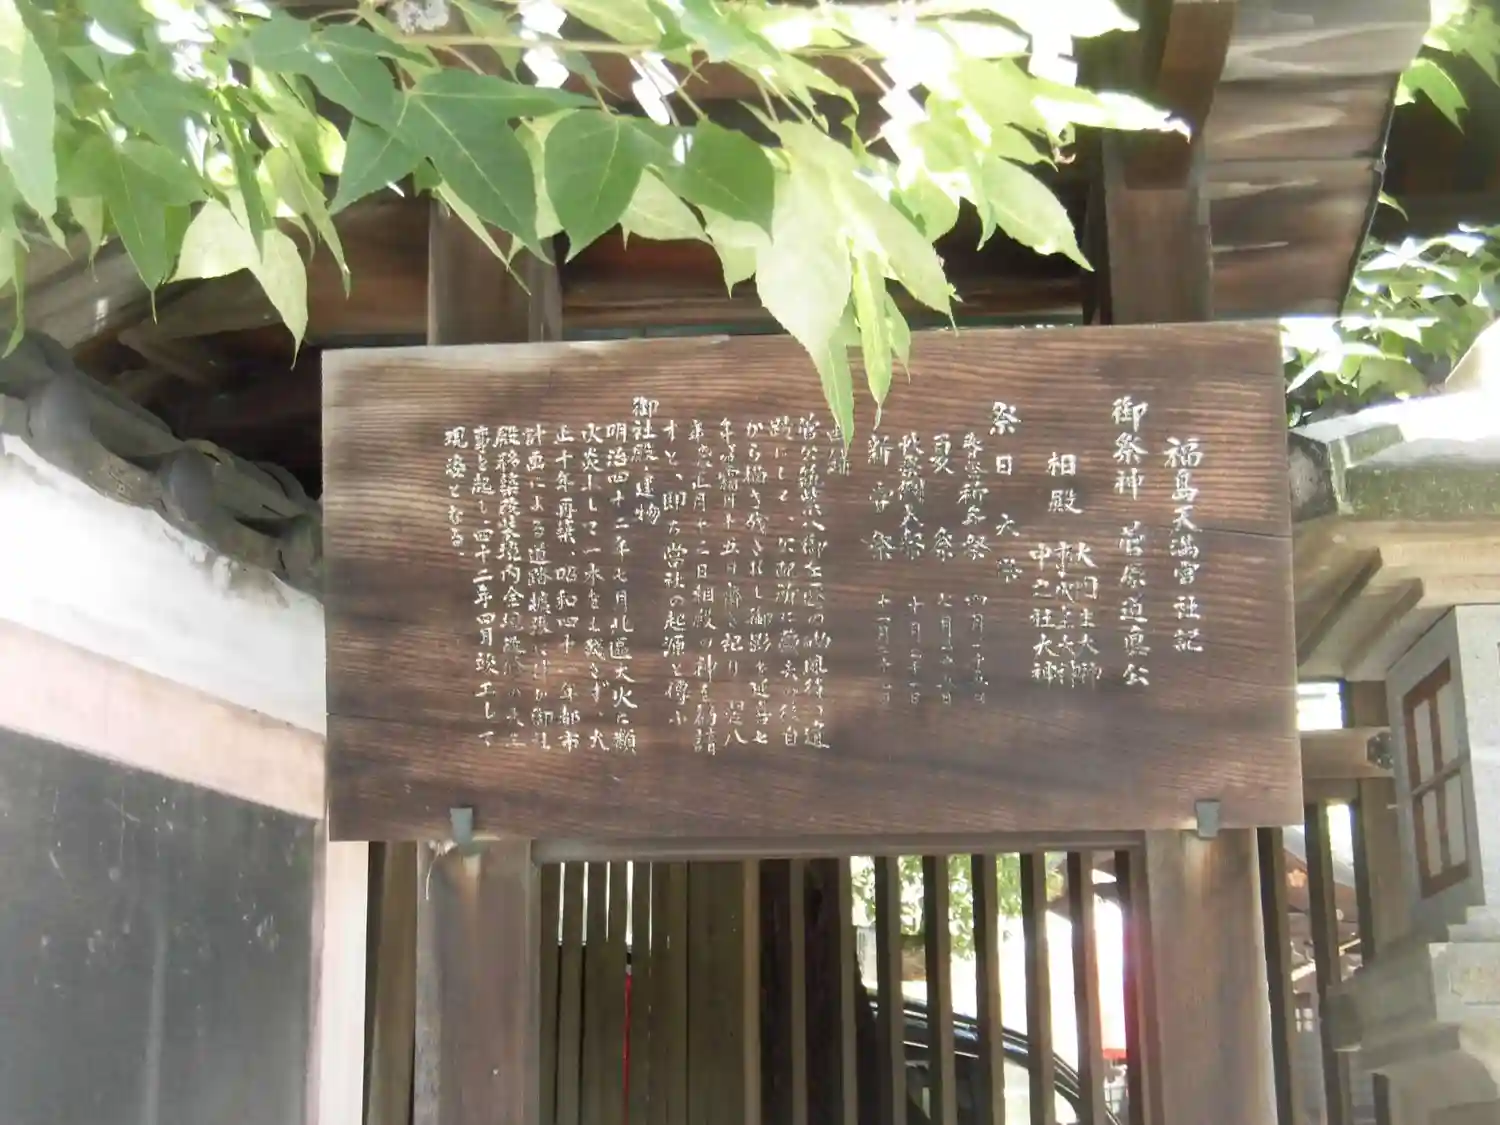 福島天満宮社記
御祭神 菅原道真公
相殿 大門主大神
大神
中之社大神
祭日 大祭
祈年祭 四月二十五日
夏祭 七月二十五日
大祭 十月二十日
新穀祭 十一月二十三日
由緒
菅公筑紫へ御左遷の砌風待の道
跡にして、公配所に薨去の後自
から描き残されし御影を延喜七
年霜月十五日斎き祀り、翌八
年正月十二日相殿の神を勧請
す と、即ち當社の起源と傳ふ
御社殿・建物
明治四十二年七月北區大火に類
火炎上して一木をも残さず、大
正十年再築、昭和四十一年都市
計画による道路拡張に伴ひ御社
殿移築竝境内全域
事を起し、四十二年四月竣工して
現姿となる。